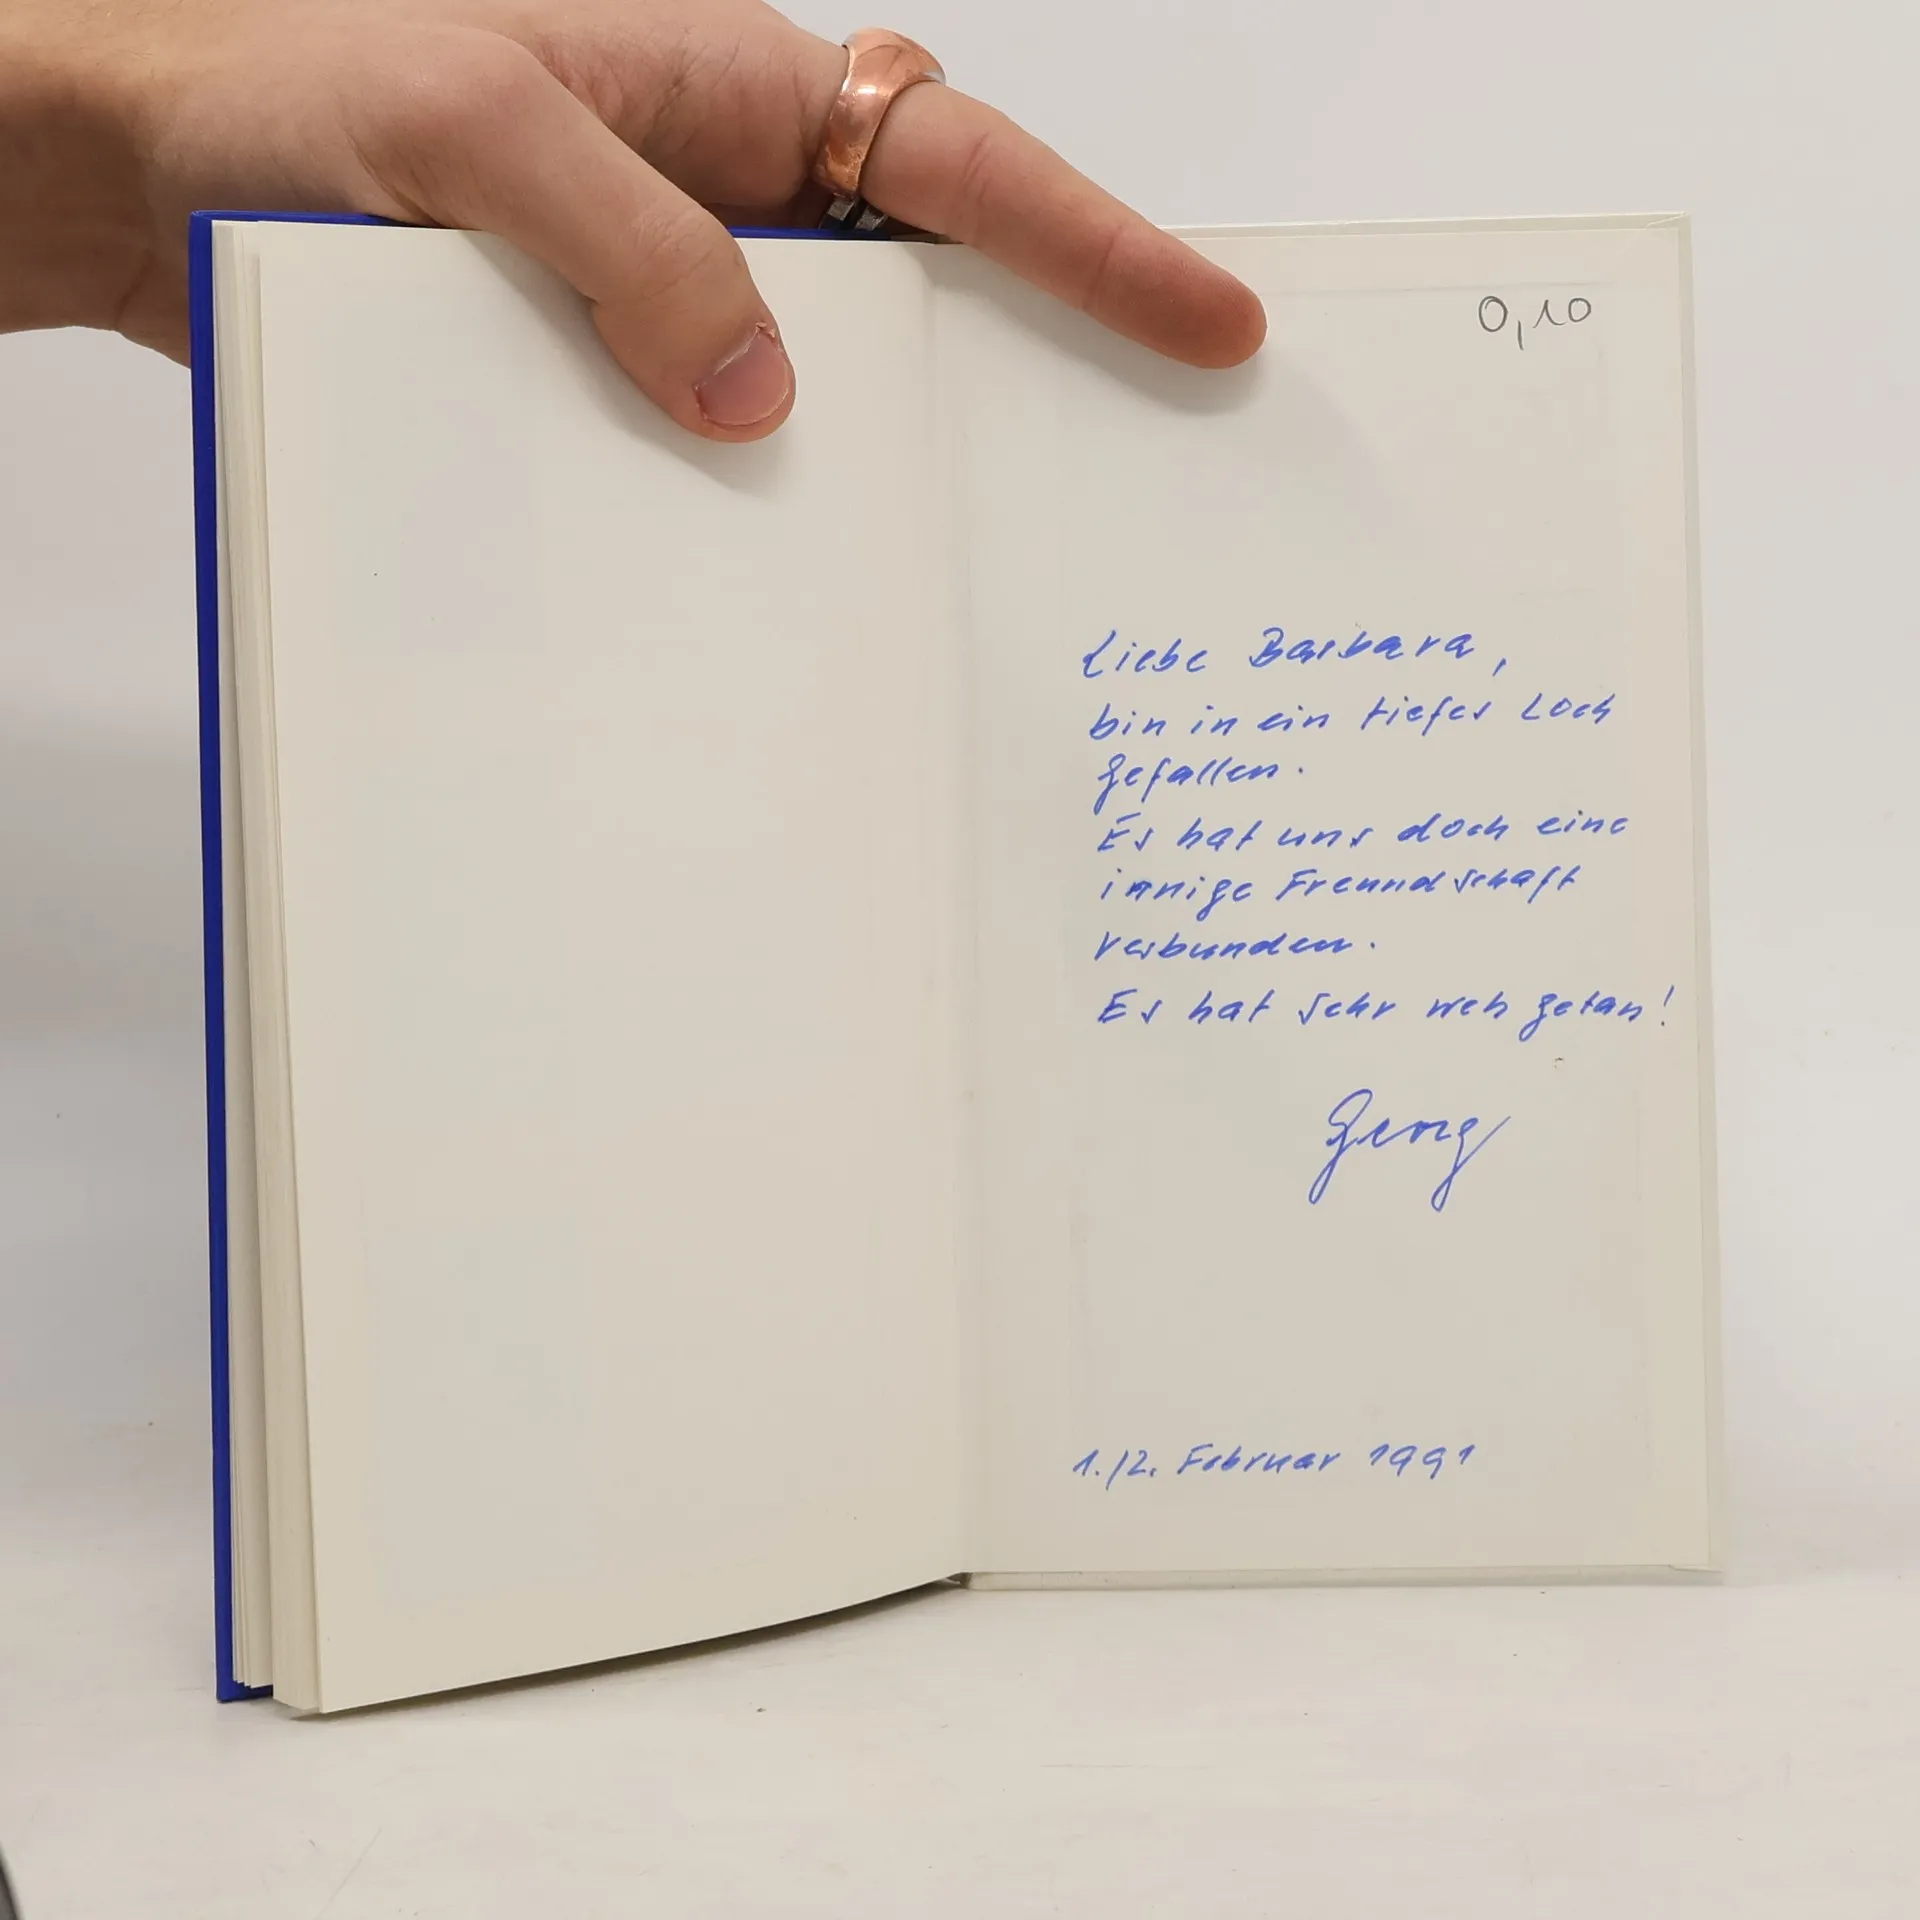 0,10
Liebe Barbara,
bin in ein tiefes Loch
gefallen.
Es hat uns doch eine
innige Freundschaft
verbunden.
Es hat sehr weh getan!
Georg
1./2. Februar 1991